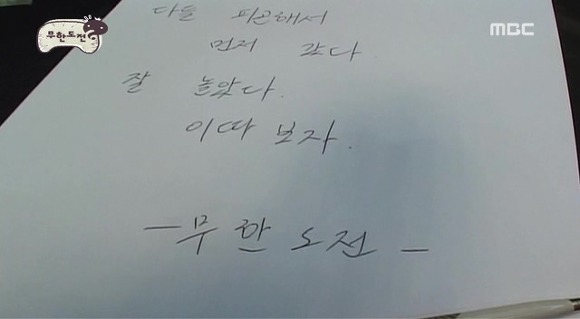 무한도전
MBC
다들 피곤해서
먼저 갔다
잘 놀았다.
이따 보자.
- 무한도전 -